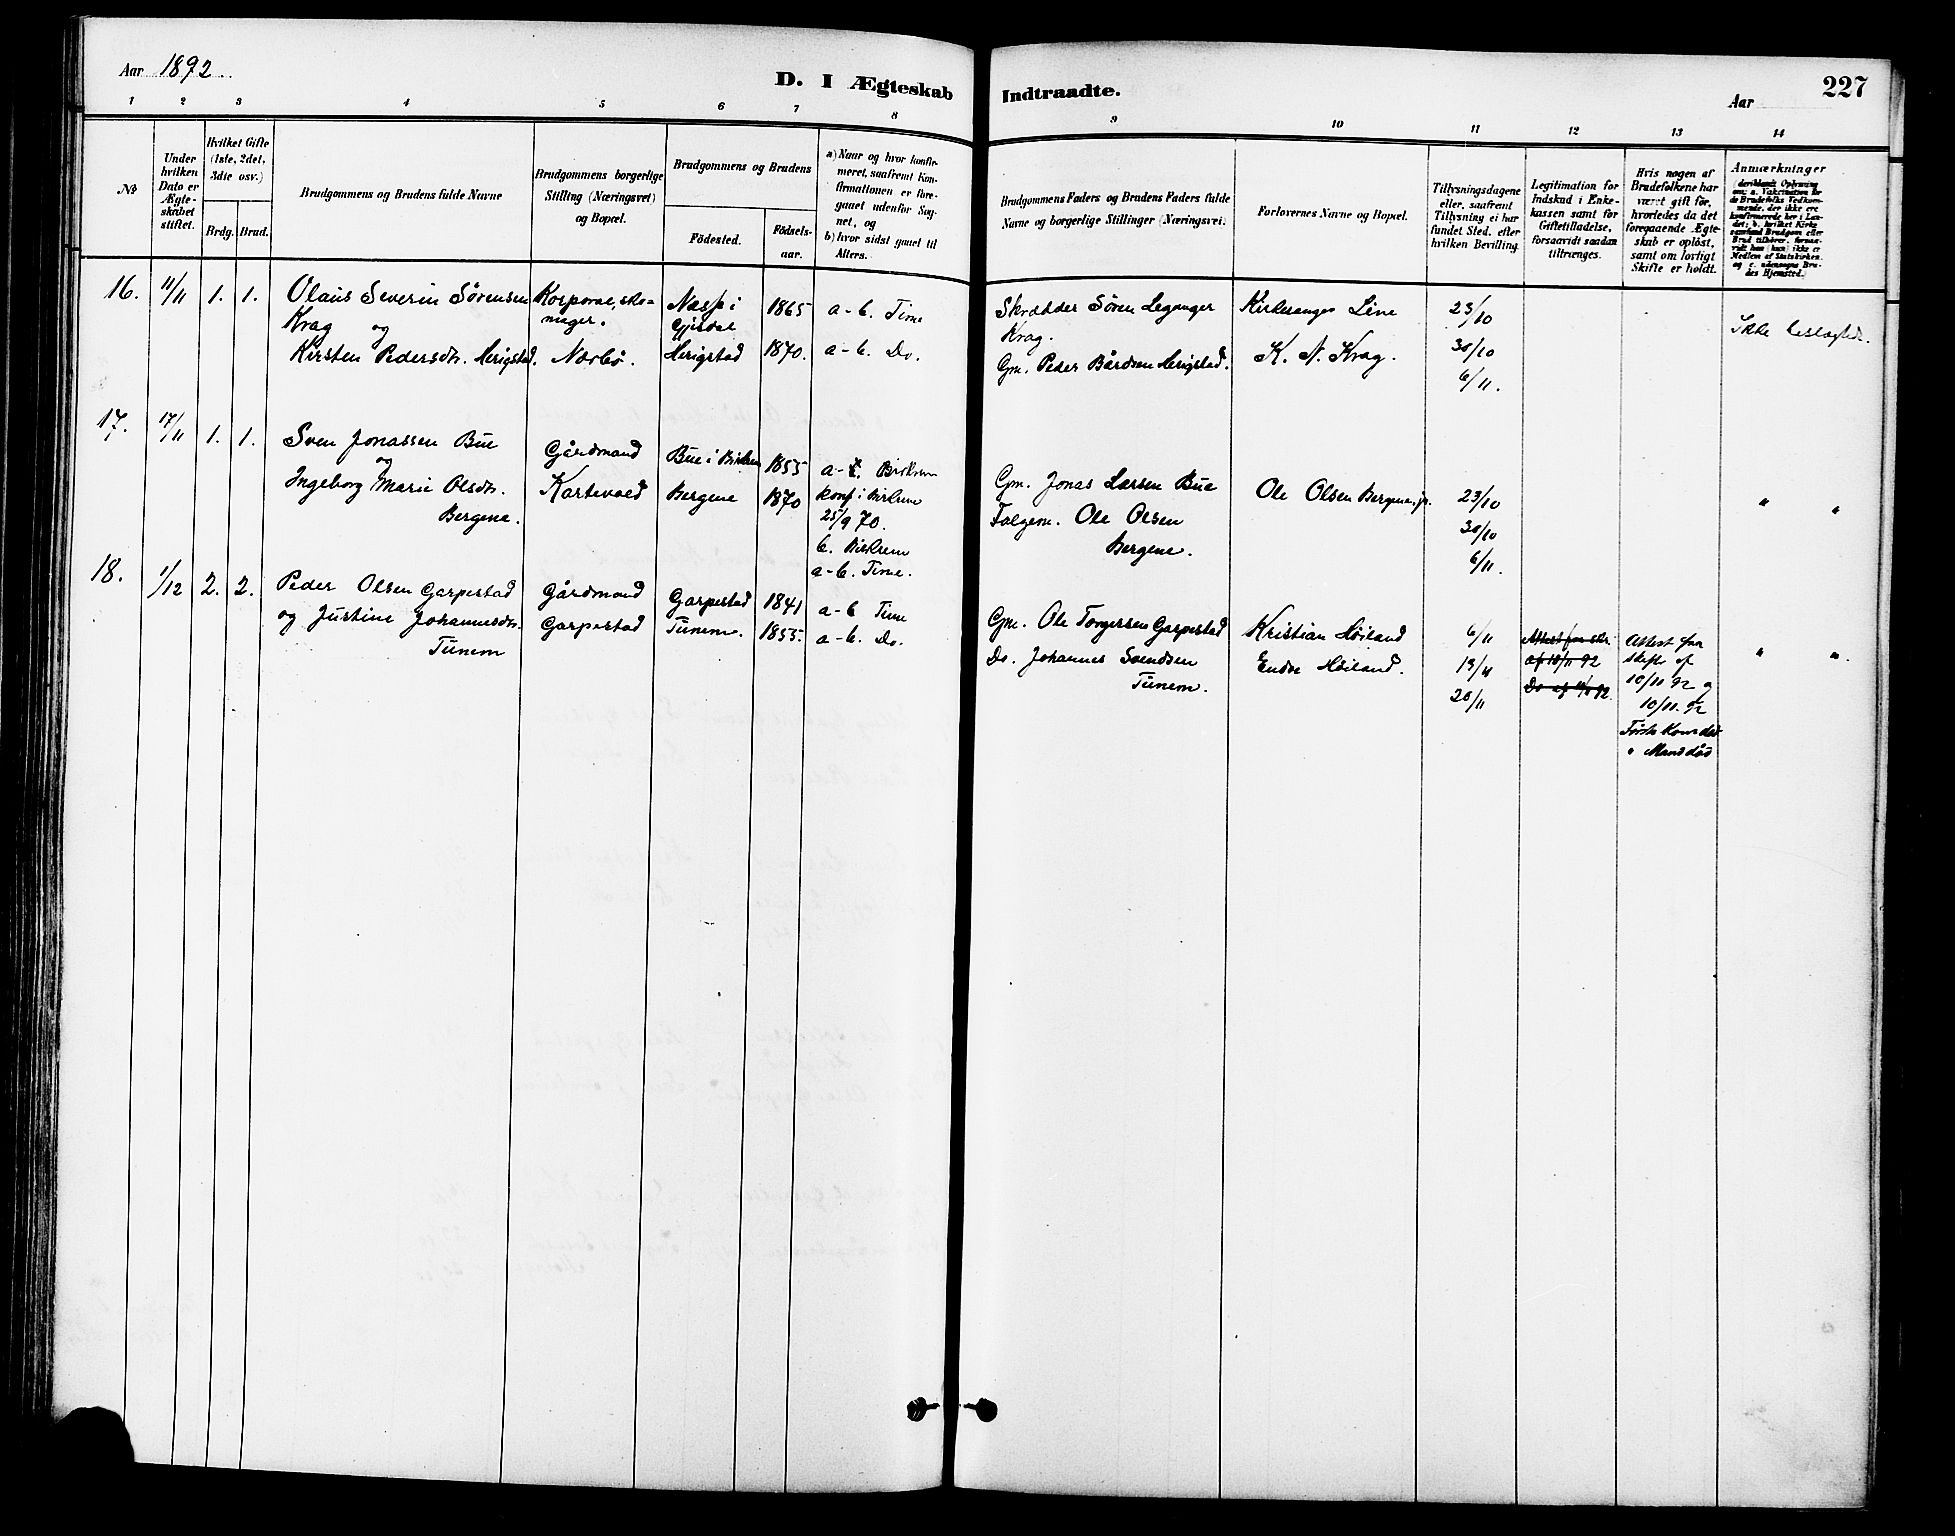 Aar 1892
D. I Ægteskab Indtraadte.
Aar
227
1 2 3 4 5 6 7 8 9 10 11 12 13 14
No
Under
hvilken
Dato er
Ægte-
skabet
stiftet.
Hvilket Gifte
(1ste, 2det,
3die osv.)
Brdg. Brud.
Brudgommens og Brudens fulde Navne
Brudgommens borgerlige
Stilling (Næringsvei)
og Bopæl.
Brudgommens og Brudens
Födested.
Födsels-
aar.
a) Naar og hvor konfir-
meret, saafremt Kon-
firmationen er fore-
gaaet udenfor Sog-
net, og
b) hvor sidst gaaet til
Alters.
Brudgommens Faders og Brudens Faders fulde
Navne og borgerlige Stillinger (Næringsvei).
Forlovernes Navne og Bopæl.
Tillysningsdagene
eller, saafremt
Tillysning ei har
fundet Sted, efter
hvilken Bevilling.
Legitimation for
Indskud i Enke-
kassen samt for
Giftetilladelse,
forsaavidt saadan
tiltrænges.
Hvis nogen af
Brudefolkene har
været gift før,
hvorledes da det
foregaaende Ægte-
skab er opløst,
samt om lovligt
Skifte er holdt.
Anmærkninger
(deriblandt Oplysning
om: a. Vakcination for
de Brudefolks Vedkom-
mende, der ikke ere
konfirmerede her i Lan-
det; b. hvilket Kirke
samfund Brudgom eller
Brud tilhører, forsaa-
vidt han (hun) ikke er
Medlem af Statskirken,
og c. udensogns Bru-
des Hjemsted.)
16. 11/11 1. 1.
Olaus Severin Sørensen
Krag
og
Kirsten Pedersdtr. Herigstad.
Korporal, sko-
mager.
Nærbø.
Næsse i
Gjesdal
Herigstad
1865
1870.
a-b. Time
a-b. Do.
Skrædder Sören Leganger
Krag.
Gm. Peder Bårdsen Herigstad.
Kirkesanger Line
K. N. Krag.
23/10
30/10
6/11.
Ikke beslægtede.
17. 17/11 1. 1.
Sven Jonassen Bue
og
Ingeborg Marie Olsdtr.
Bergene.
Gårdmand
Kartevold
Bue i Birkrem
Bergene
1855
1870
a-b. Birkrem
konf i Birkrem
25/9 70.
b. Birkrem
a-b. Time.
Gm. Jonas Larsen Bue
Folgem. Ole Olsen
Bergene.
Ole Olsen Bergene jr.
23/10
30/10
6/11.
" "
18. 1/12 2. 2.
Peder Olsen Garpestad
og Justine Johannesdtr.
Tunem
Gårdmand
Garpestad
Garpestad
Tunem.
1841
1855.
a-b Time
a-b. Do.
Gm. Ole Torgersen Garpestad
Do. Johannes Svendsen
Tunem.
Kristian Høiland
Endre Høiland.
6/11
13/11
20/11
Attest fra skr.
af 10/11 92
Do af 10/11 92.
Attest fra
skifte af
10/11 92 og
10/11. 92
Første Kone død
" Mand død
" ".